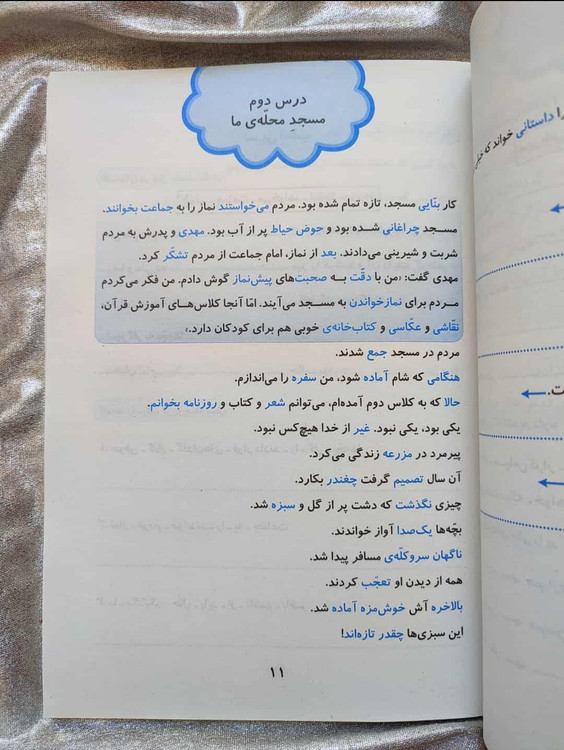 درس دوم
مسجدِ محلّه‌ی ما
کار بنّایی مسجد، تازه تمام شده بود. مردم می‌خواستند نماز را به جماعت بخوانند.
مسجد چراغانی شده بود و حوض حیاط پر از آب بود. مهدی و پدرش به مردم
شربت و شیرینی می‌دادند. بعد از نماز، امام جماعت از مردم تشکّر کرد.
مهدی گفت: «من با دقّت به صحبت‌های پیش‌نماز گوش دادم. من فکر می‌کردم
مردم برای نمازخواندن به مسجد می‌آیند. امّا آنجا کلاس‌های آموزش قرآن،
نقّاشی و عکّاسی و کتاب‌خانه‌ی خوبی هم برای کودکان دارد.»
مردم در مسجد جمع شدند.
هنگامی که شام آماده شود، من سفره را می‌اندازم.
حالا که به کلاس دوم آمده‌ام، می‌توانم شعر و کتاب و روزنامه بخوانم.
یکی بود، یکی نبود. غیر از خدا هیچ‌کس نبود.
پیرمرد در مزرعه زندگی می‌کرد.
آن سال تصمیم گرفت چغندر بکارد.
چیزی نگذشت که دشت پر از گل و سبزه شد.
بچّه‌ها یک‌صدا آواز خواندند.
ناگهان سروکلّه‌ی مسافر پیدا شد.
همه از دیدن او تعجّب کردند.
بالاخره آش خوش‌مزه آماده شد.
این سبزی‌ها چقدر تازه‌اند!
۱۱
را داستانی خواند که